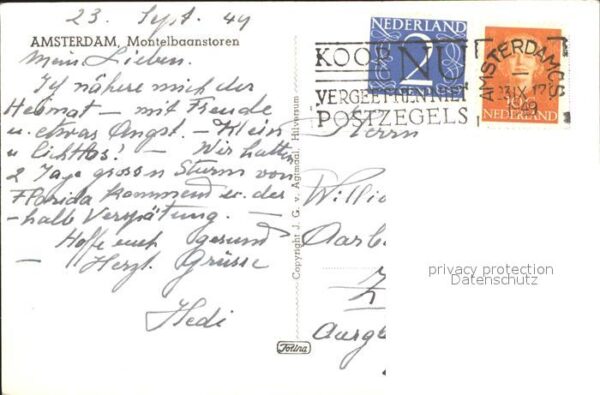 23. Sept. 49
AMSTERDAM, Montelbaanstoren
Mein Lieben.
Ich nähere mich der
Heimat – mit Freude
u. etwas Angst. – Klein
u lichtlos! – Wir hatten
2 Tage grossen Sturm von
Florida kommend u. des
-halb Verspätung. –
Hoffe euch gesund
– Herzl. Grüsse
Hedi
Copyright J. G. v. Agtmaal, Hilversum
Fotina
NEDERLAND
2
KOOP NU
VERGEET HEN NIET
POSTZEGELS
AMSTERDAM CS
23 IX 17
1949
10c
NEDERLAND
Herrn
Willi
Aarb
Z
Aarg
privacy protection
Datenschutz